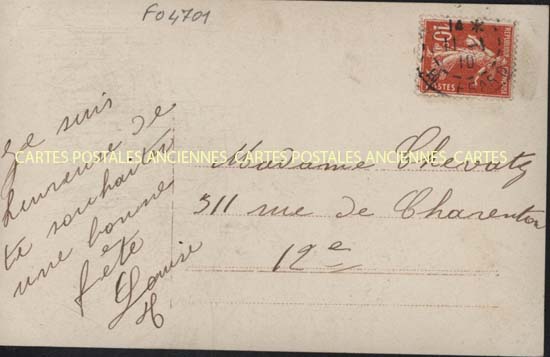 F04701
14 *
11 - 1
10
10
POSTES
Je suis
heureuse de
te souhaiter
une bonne
fête
Louise
CARTES POSTALES ANCIENNES CARTES POSTALES ANCIENNES CARTES
Madame
311 rue de Charenton
12e